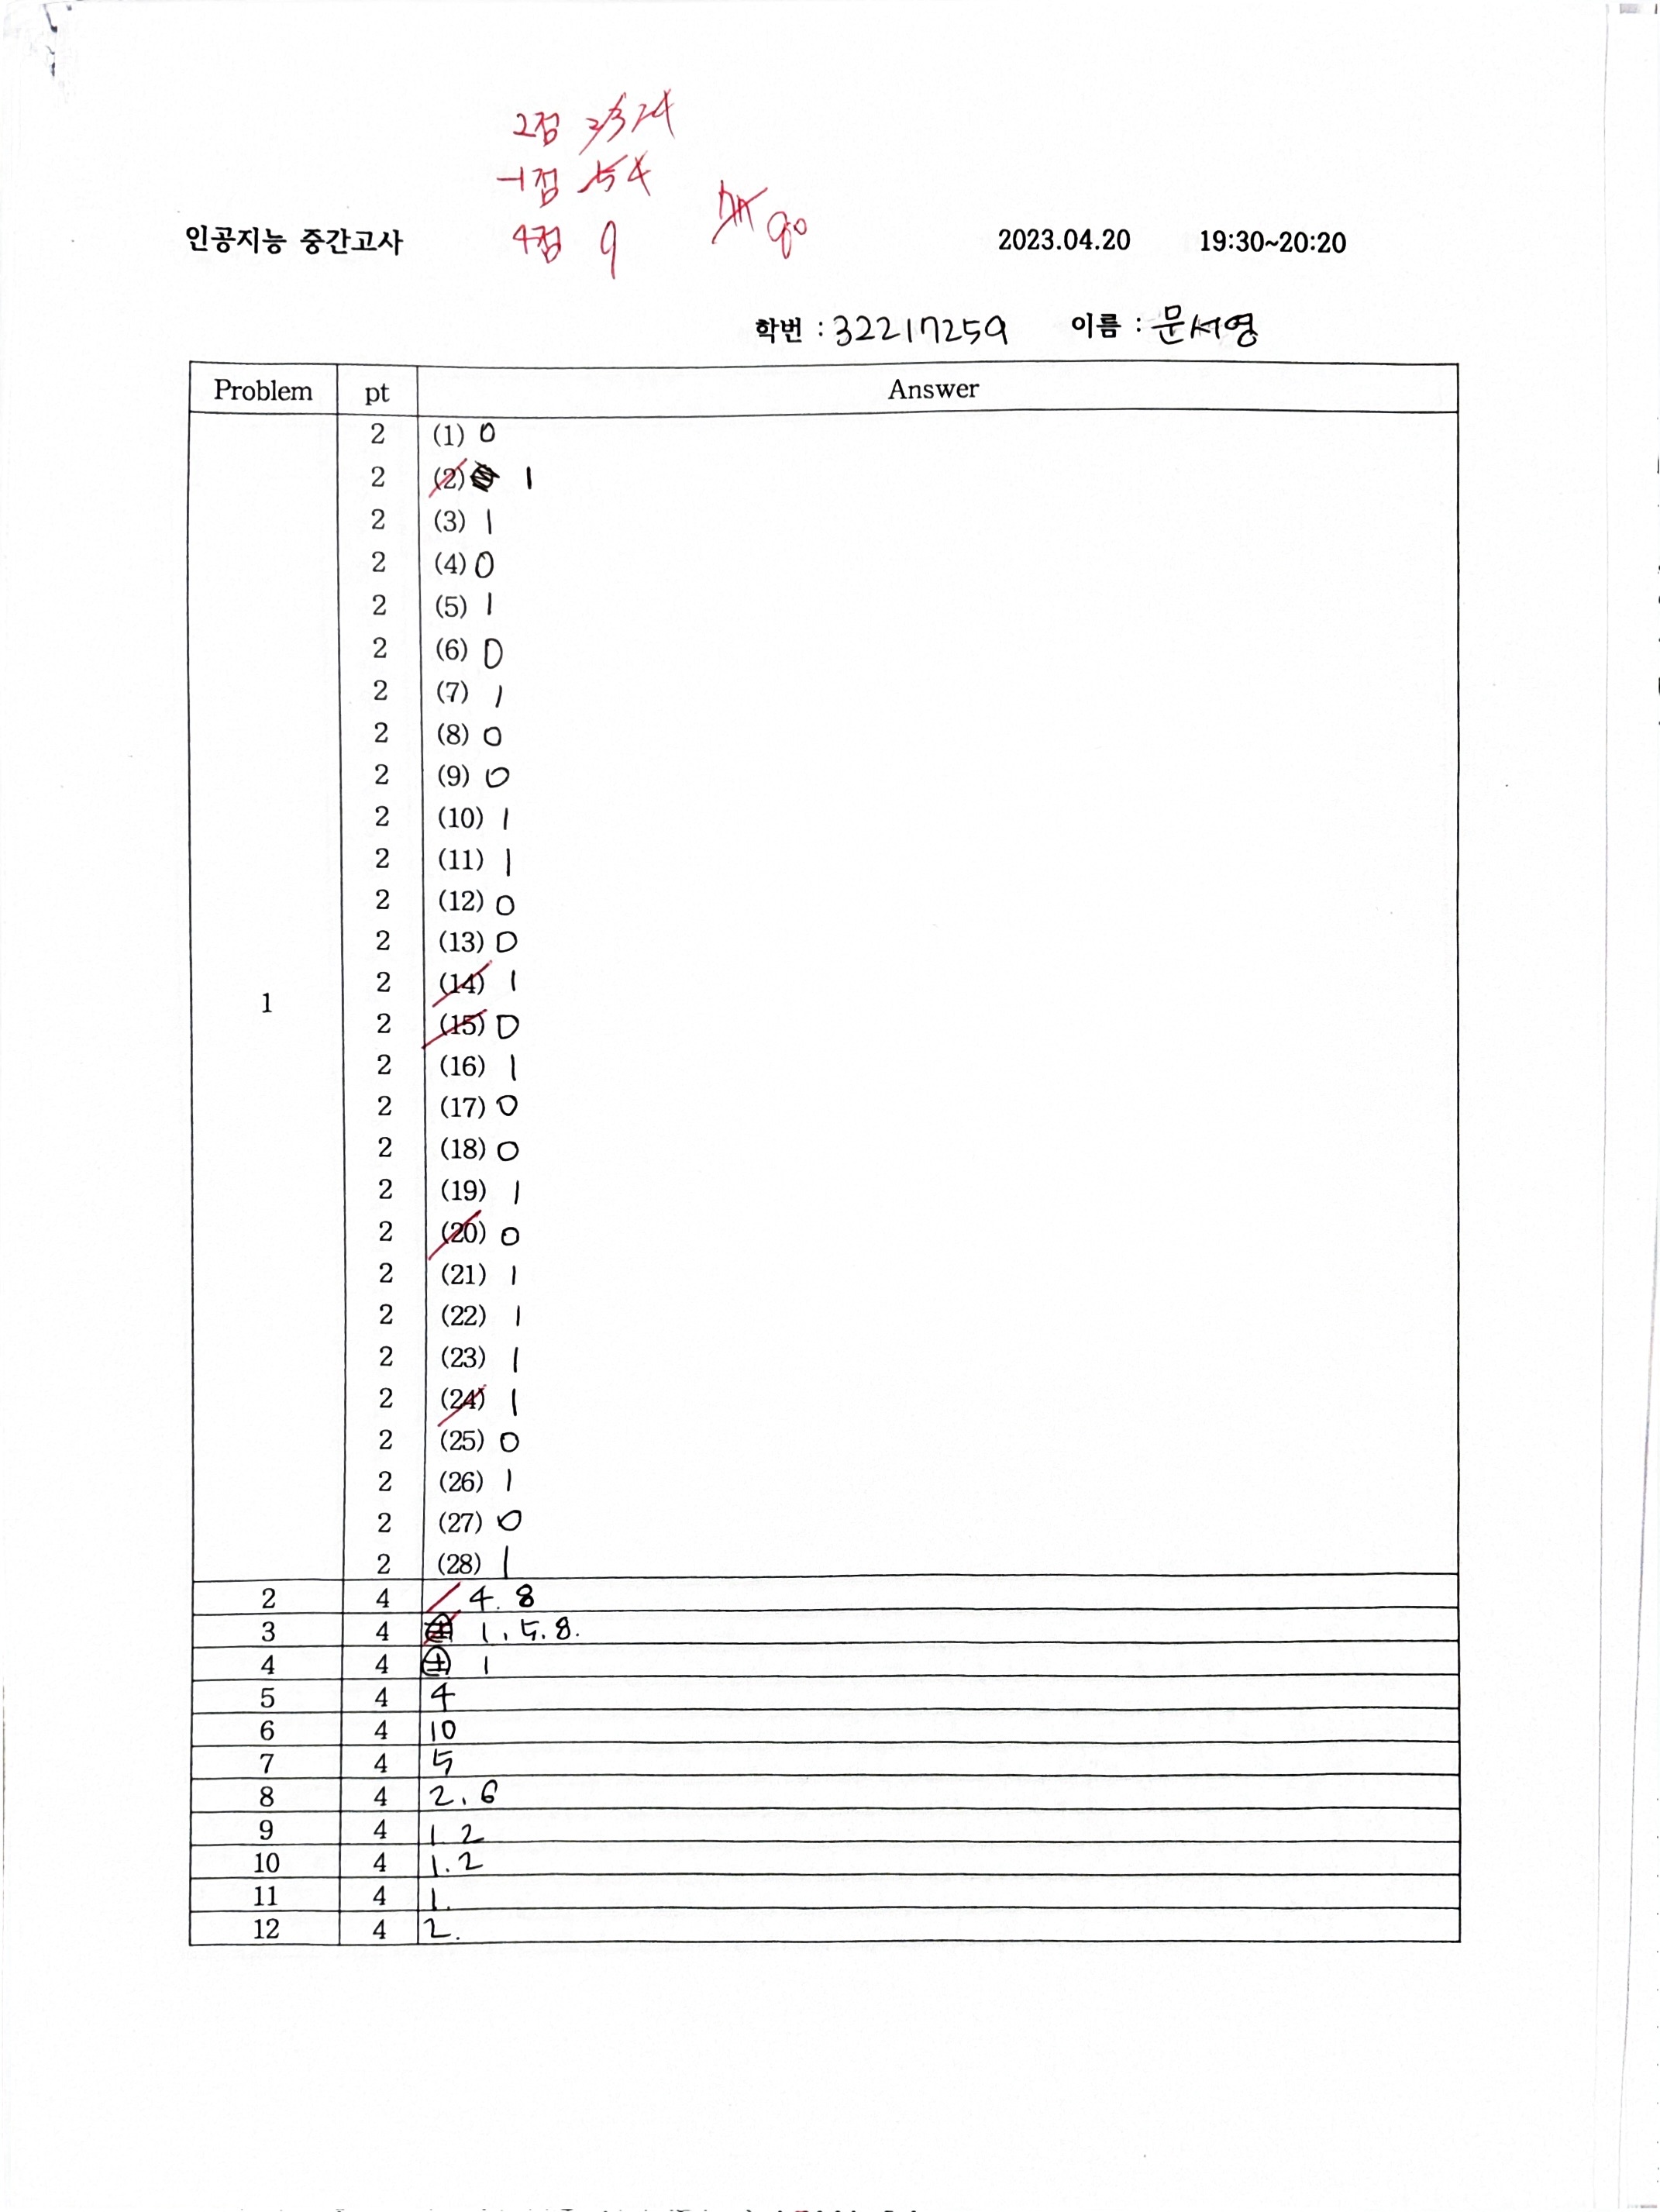 2점
-1점 4
4점 9
90
인공지능 중간고사 2023.04.20 19:30~20:20
학번 : 32217259 이름 : 문서영
Problem pt Answer
1
2 (1) 0
2 (2) 1
2 (3) 1
2 (4) 0
2 (5) 1
2 (6) 0
2 (7) 1
2 (8) 0
2 (9) 0
2 (10) 1
2 (11) 1
2 (12) 0
2 (13) 0
2 (14) 1
2 (15) 0
2 (16) 1
2 (17) 0
2 (18) 0
2 (19) 1
2 (20) 0
2 (21) 1
2 (22) 1
2 (23) 1
2 (24) 1
2 (25) 0
2 (26) 1
2 (27) 0
2 (28) 1
2 4 4. 8
3 4 1. 5. 8.
4 4 1
5 4 4
6 4 10
7 4 5
8 4 2. 6
9 4 1 2
10 4 1. 2
11 4 1.
12 4 2.